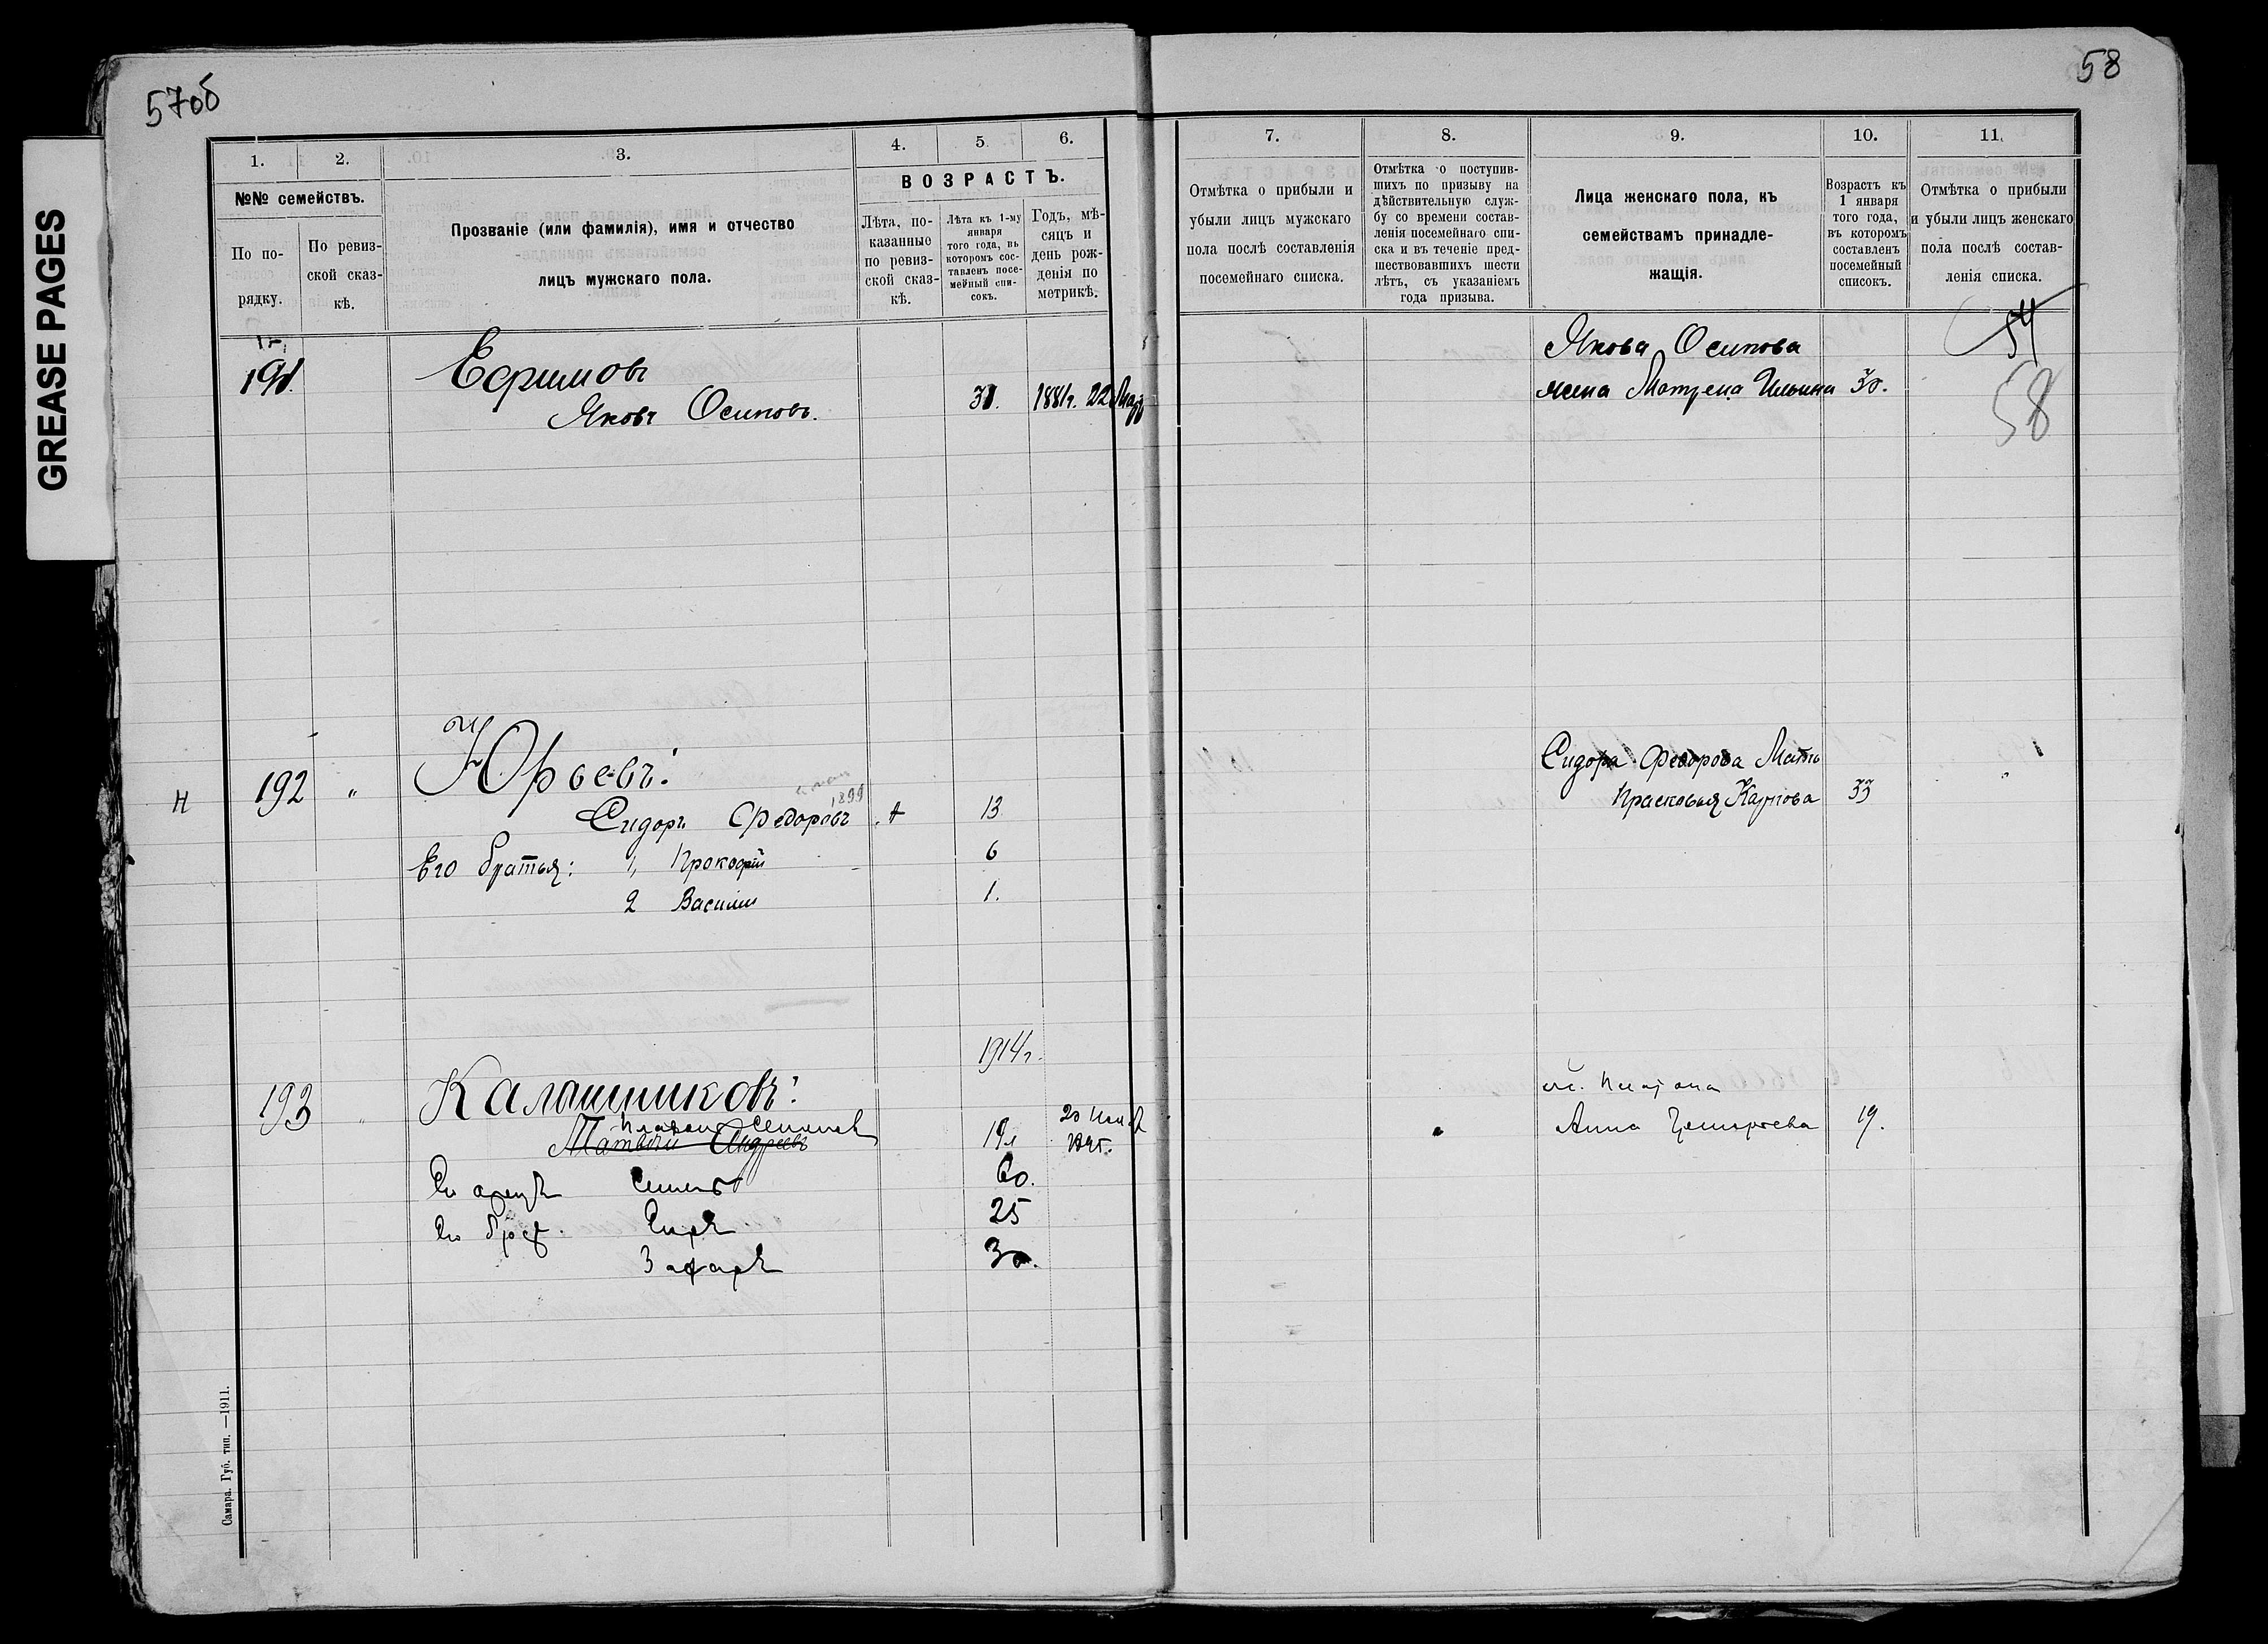 57об
58
GREASE PAGES
1.
2.
3.
4.
5.
6.
№№ семействъ.
По по-
рядку.
По ревиз-
ской сказ-
кѣ.
Прозваніе (или фамилія), имя и отчество
лицъ мужскаго пола.
ВОЗРАСТЪ.
Лѣта, по-
казанные
по ревиз-
ской сказ-
кѣ.
Лѣта къ 1-му
января
того года, въ
которомъ сос-
тавленъ посе-
мейный спи-
сокъ.
Годъ, мѣ-
сяцъ и
день рож-
денія по
метрикѣ.
7.
8.
9.
10.
11.
Отмѣтка о прибыли и
убыли лицъ мужскаго
пола послѣ составленія
посемейнаго списка.
Отмѣтка о поступив-
шихъ по призыву на
дѣйствительную служ-
бу со времени состав-
ленія посемейнаго спи-
ска и въ теченіе пред-
шествовавшихъ шести
лѣтъ, съ указаніемъ
года призыва.
Лица женскаго пола, къ
семействамъ принадле-
жащія.
Возрастъ къ
1 января
того года,
въ которомъ
составленъ
посемейный
списокъ.
Отмѣтка о прибыли
и убыли лицъ женскаго
пола послѣ состав-
ленія списка.
54
58
191.
Ефимовъ
Яковъ Осиповъ.
31.
1881г. 22
Якова Осипова
жена Матрена Ильина 30.
Н
192 "
Юрьевъ:
1899
Сидоръ Федоровъ
13
Его братья: 1, Прокофій
6
2 Василий
1.
Сидора Федорова Мать
Прасковья Карпова 33
1914г.
193
Калашниковъ:
Платон Семенов
Матвѣй Андреевъ
19
20
Семенъ
60.
25
Захаръ
30.
Платона
Анна
19.
Самара. Губ. тип. —1911.